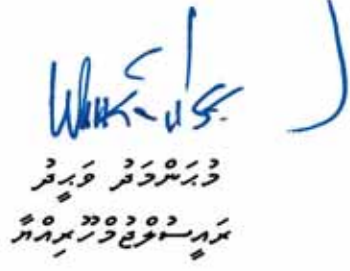 މުޙައްމަދު ވަޙީދު
ރައީސުލްޖުމްހޫރިއްޔާ